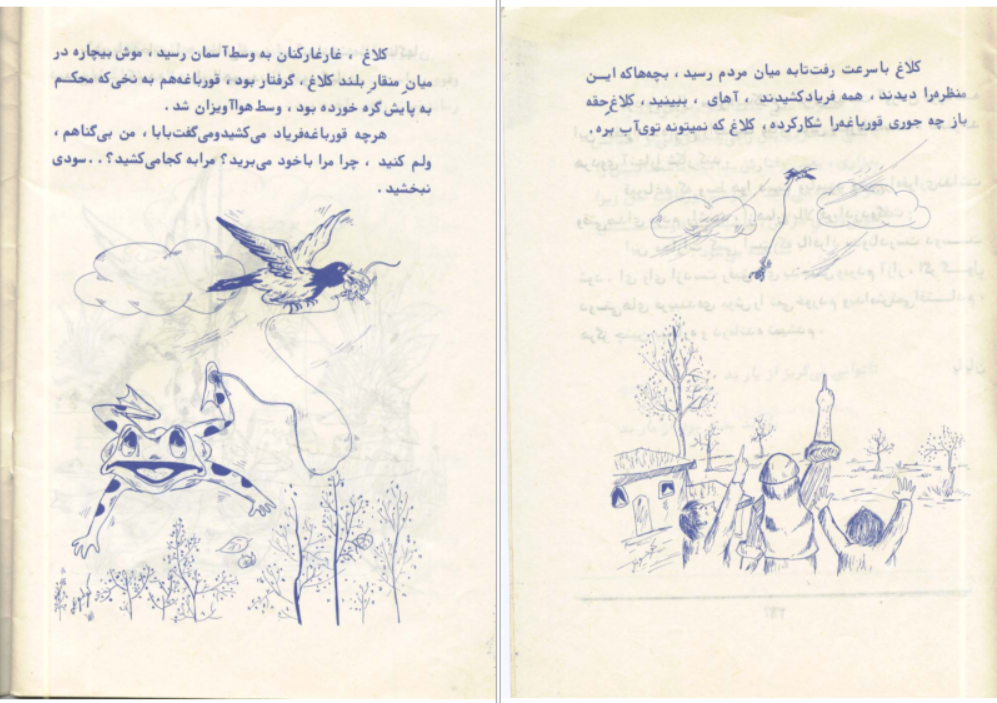 کلاغ ، غارغارکنان به وسط آسمان رسید ، موش بیچاره در
میانِ منقار بلند کلاغ، گرفتار بود ، قورباغه‌هم به نخی‌که محکم
به پایش گره خورده بود ، وسط هوا آویزان شد .
هرچه قورباغه فریاد می‌کشید ومی‌گفت بابا ، من بی‌گناهم ،
ولم کنید ، چرا مرا باخود می‌برید؟ مرا به کجا می‌کشید؟ . . سودی
نبخشید .
کلاغ با سرعت رفت تا به میان مردم رسید ، بچه‌ها که ایـــن
منظره را دیدند ، همه فریاد کشیدند ، آهای ، ببینید ، کلاغ حقه
باز چه جوری قورباغه را شکار کرده ، کلاغ که نمیتونه توی آب بره .